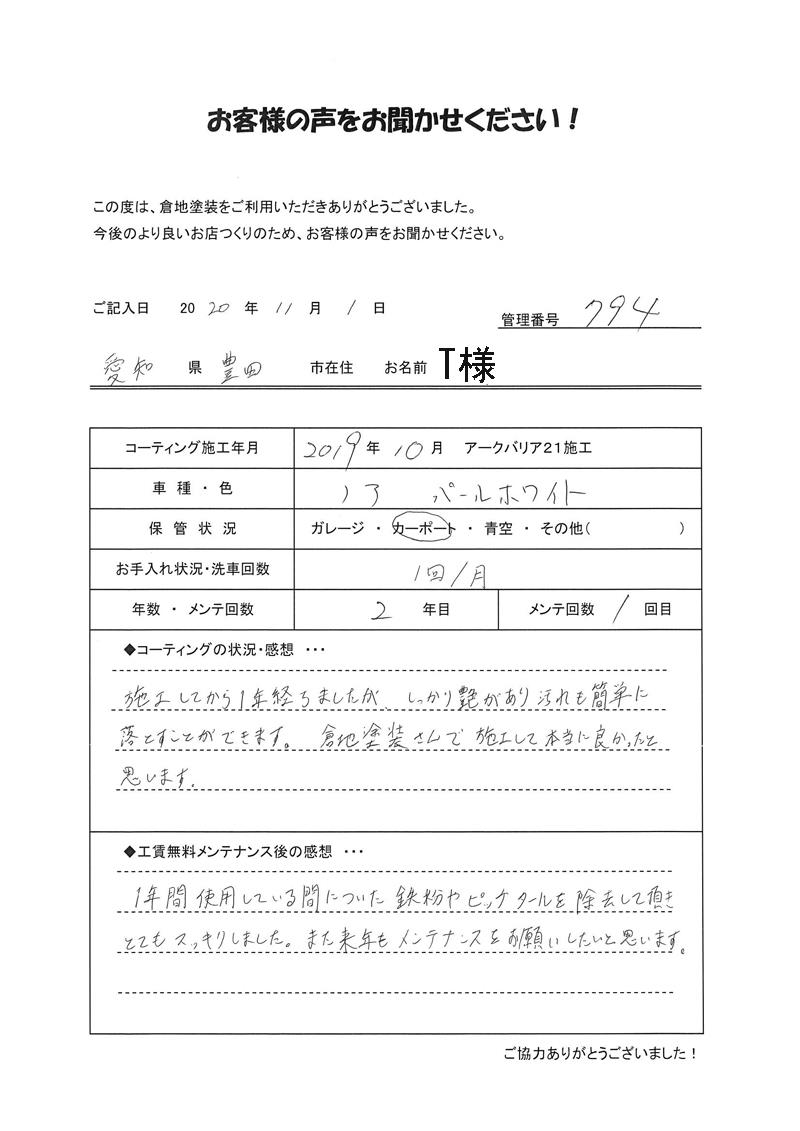 お客様の声をお聞かせください!
この度は、倉地塗装をご利用いただきありがとうございました。
今後のより良いお店つくりのため、お客様の声をお聞かせください。
ご記入日 2020年11月1日
管理番号 794
愛知県豊田市在住 お名前 T様
コーティング施工年月 2019年10月 アークバリア21施工
車種・色 ノア パールホワイト
保管状況 ガレージ・カーポート・青空・その他( )
お手入れ状況・洗車回数 1回/月
年数・メンテ回数 2年目 メンテ回数 1回目
◆コーティングの状況・感想 ・・・
施工してから1年経ちましたが、しっかり艶があり汚れも簡単に
落とすことができます。 倉地塗装さんで施工して本当に良かったと
思います。
◆工賃無料メンテナンス後の感想 ・・・
1年間使用している間についた鉄粉やピッチタールを除去して頂き
とてもスッキリしました。また来年もメンテナンスをお願いしたいと思います。
ご協力ありがとうございました!